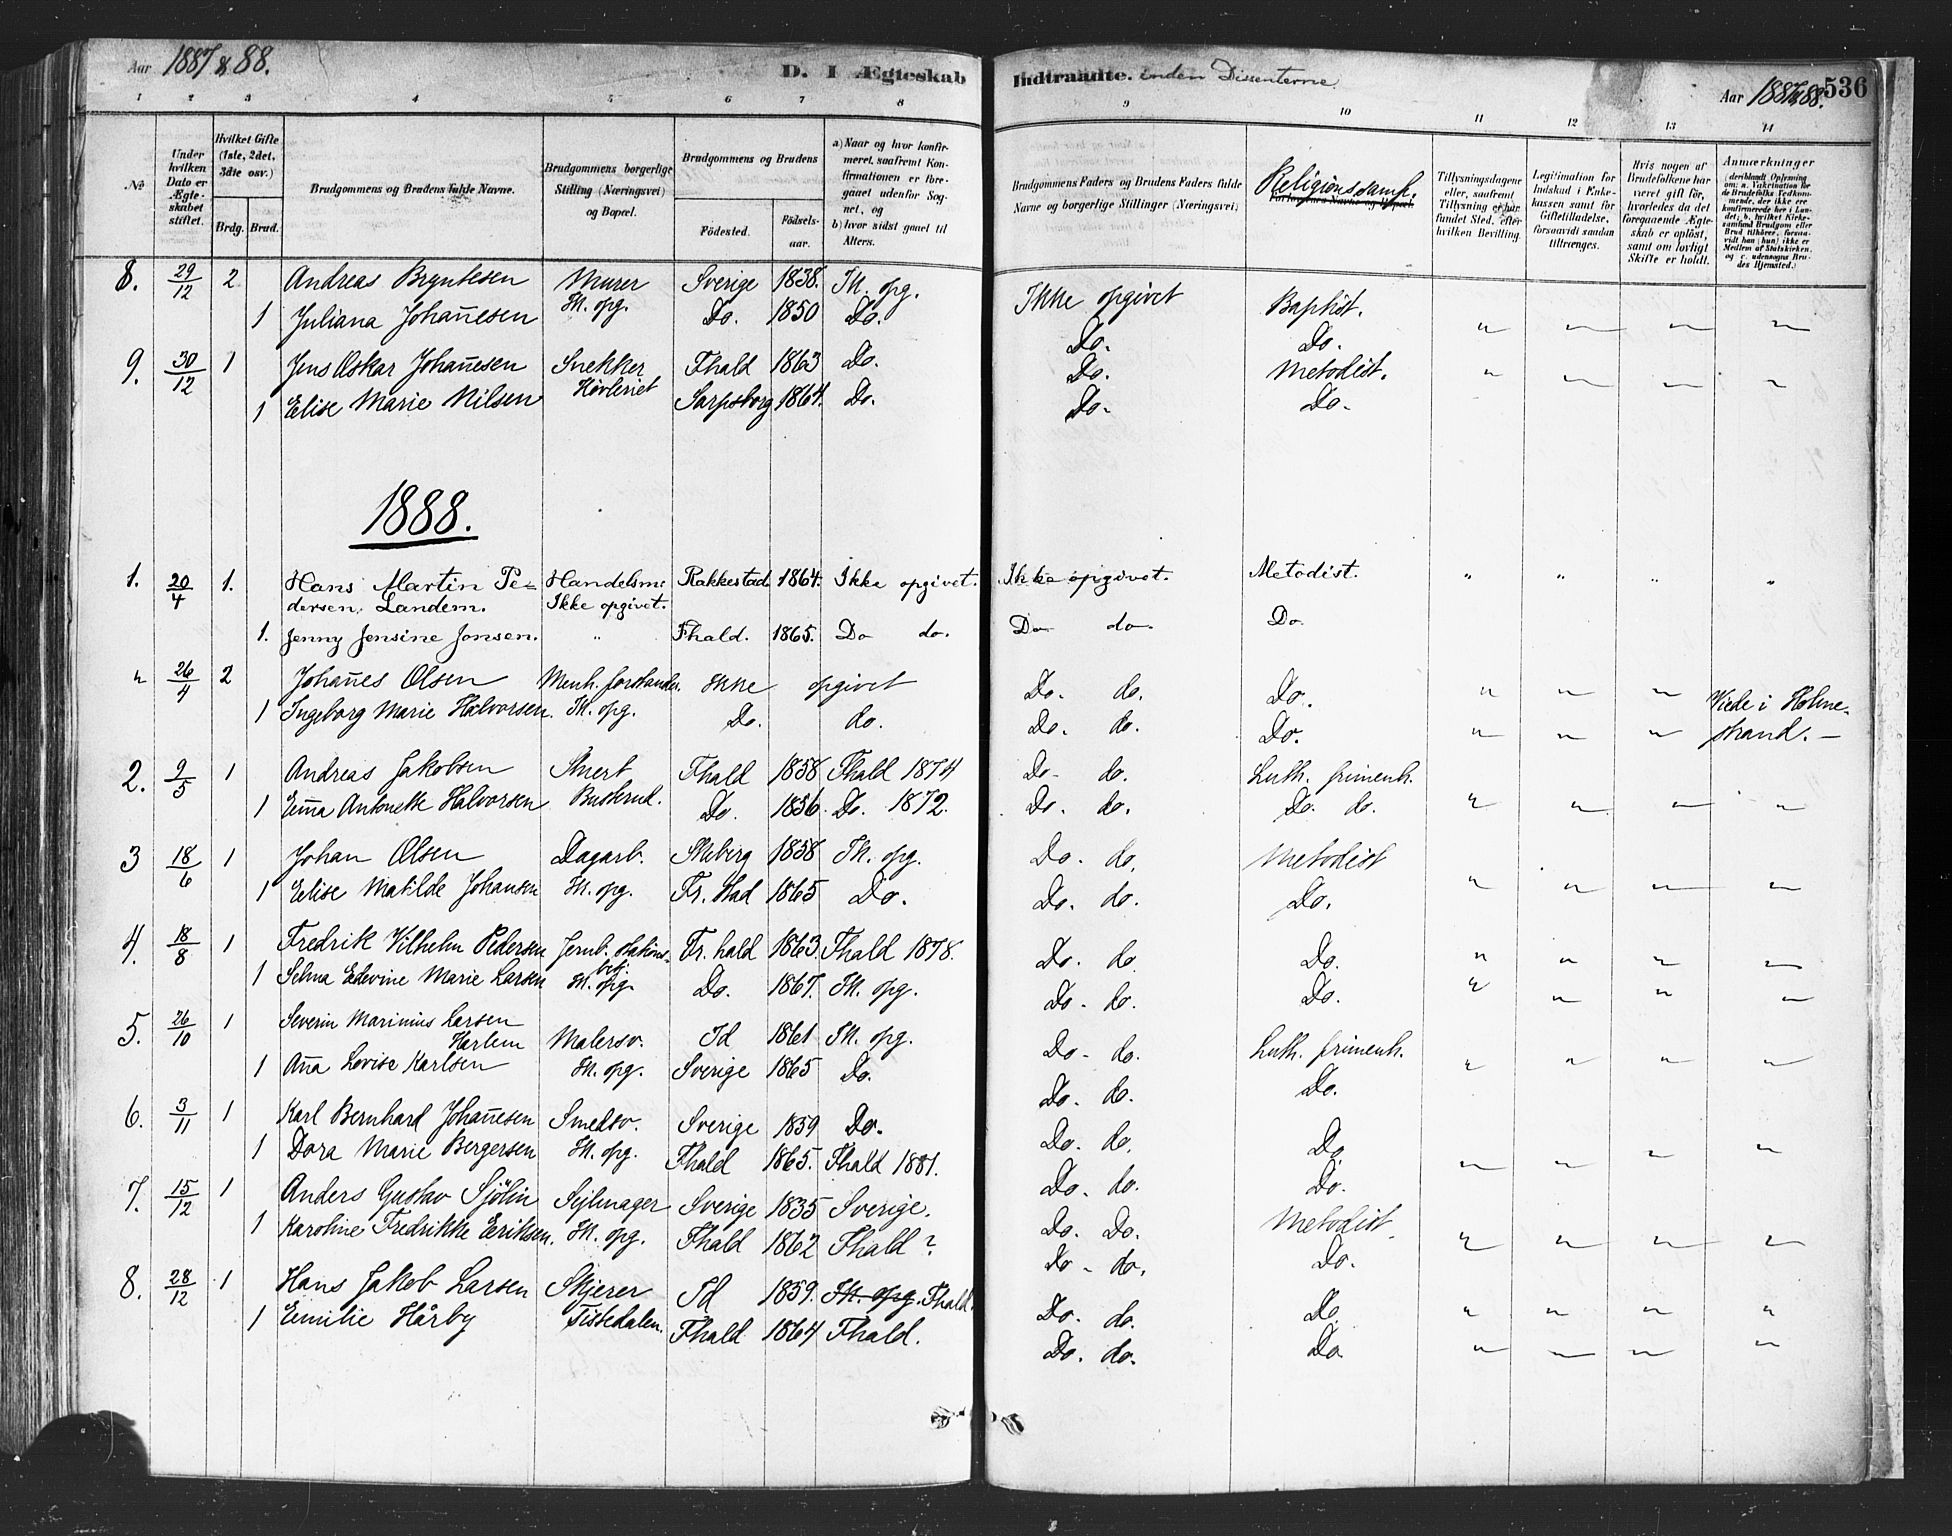 Aar 1887 & 88.
D. I Ægteskab Indtraadte. inden Dissenterne
Aar 1887 & 88. 536
1 2 3 4 5 6 7 8 9 10 11 12 13 14
No
Under hvilken Dato er Ægteskabet stiftet.
Hvilket Gifte (1ste, 2det, 3die osv.)
Brdg. Brud.
Brudgommens og Brudens fulde Navne.
Brudgommens borgerlige Stilling (Næringsvei) og Bopæl.
Brudgommens og Brudens
Födested. Födsels-aar.
a) Naar og hvor konfirmeret, saafremt Konfirmationen er foregaaet udenfor Sognet, og
b) hvor sidst gaaet til Alters.
Brudgommens Faders og Brudens Faders fulde Navne og borgerlige Stillinger (Næringsvei)
Religionssamf.
Forlovernes Navne og Bopæl.
Tillysningsdagene eller, saafremt Tillysning ei har fundet Sted, efter hvilken Bevilling.
Legitimation for Indskud i Enkekassen samt for Giftetilladelse, forsaavidt saadan tiltrænges.
Hvis nogen af Brudefolkene har været gift før, hvorledes da det foregaaende Ægteskab er opløst, samt om lovligt Skifte er holdt.
Anmærkninger
8. 29/12 2 Andreas Bryntesen Murer Sverige 1838. Ik. opg. Ikke opgivet Baptist.
1 Juliana Johan̄esen Ik. opg. Do. 1850 Do. Do. Do. " " " "
9. 30/12 1 Jens Oskar Johan̄esen Snekker Fhald 1863 Do. Do. Metodist. " " " "
1 Elise Marie Nilsen Høvleriet Sarpsborg 1864. Do. Do. Do.
1888.
1. 20/4 1. Hans Martin Pe- Handelsm: Rakkestad 1864. Ikke opgivet. Ikke opgivet. Metodist. " " " "
dersen Landem. Ikke opgivet.
1. Jenny Jensine Jonsen. " Fhald. 1865. Do do. Do do. Do
" 26/4 2 Johan̄es Olsen Menh. forstander. Ikke opgivet Do. do. Do. " " " Viede i Holme-
1 Ingeborg Marie Halvorsen. Ik. opg. Do. do. Do. do. Do. " " " strand. —
2. 9/5 1 Andreas Jakobsen Fhald 1858 Fhald 1874 Do. do. Luth. frimenh.
1 Em̄a Antonette Halvorsen Do. 1856. Do. 1872. Do. do. Do. do. " " " "
3 18/6 1 Johan Olsen Dagarb. Skeberg 1858 Ik. opg. Do. do. Metodist
1 Elise Matilde Johansen Ik. opg. Fr. stad 1865 Do. Do. do. Do. " " " "
4. 18/8 1 Fredrik Vilhelm Pedersen Jernb. stations- Fr. hald 1863. Fhald 1878. Do. do. Do. " " " "
1 Selma Edevine Marie Larsen Ik. opg. Do. 1867. Ik. opg. Do. do. Do. " " " "
5. 26/10 1 Severin Marinius Larsen
Harlem Malersv. Id 1861 Ik. opg. Do. do. Luth. frimenh. " " " "
1 An̄a Lovise Karlsen Ik. opg. Sverige 1865 Do. Do. do. Do.
6. 3/11 1 Karl Bernhard Johan̄esen Smedsv. Sverige 1859 Do. Do. do. Do.
1 Dora Marie Bergersen Ik. opg. Fhald 1865. Fhald 1881. Do. do. Do. " " " "
7. 15/12 1 Anders Gustav Sjölin Sejlmager Sverige 1835 Sverige. Do. Do. Metodist.
1 Karoline Fredrikke Eriksen. Ik. opg. Fhald 1862 Fhald ? Do. do. Do. " " " "
8. 28/12 1 Hans Jakob Larsen Skjerer Id 1859. Ik. opg. Fhald. Do. do. Do. " " " "
1 Emilie Hårby Tistedalen. Fhald 1864 Fhald. Do. do. Do " " " "